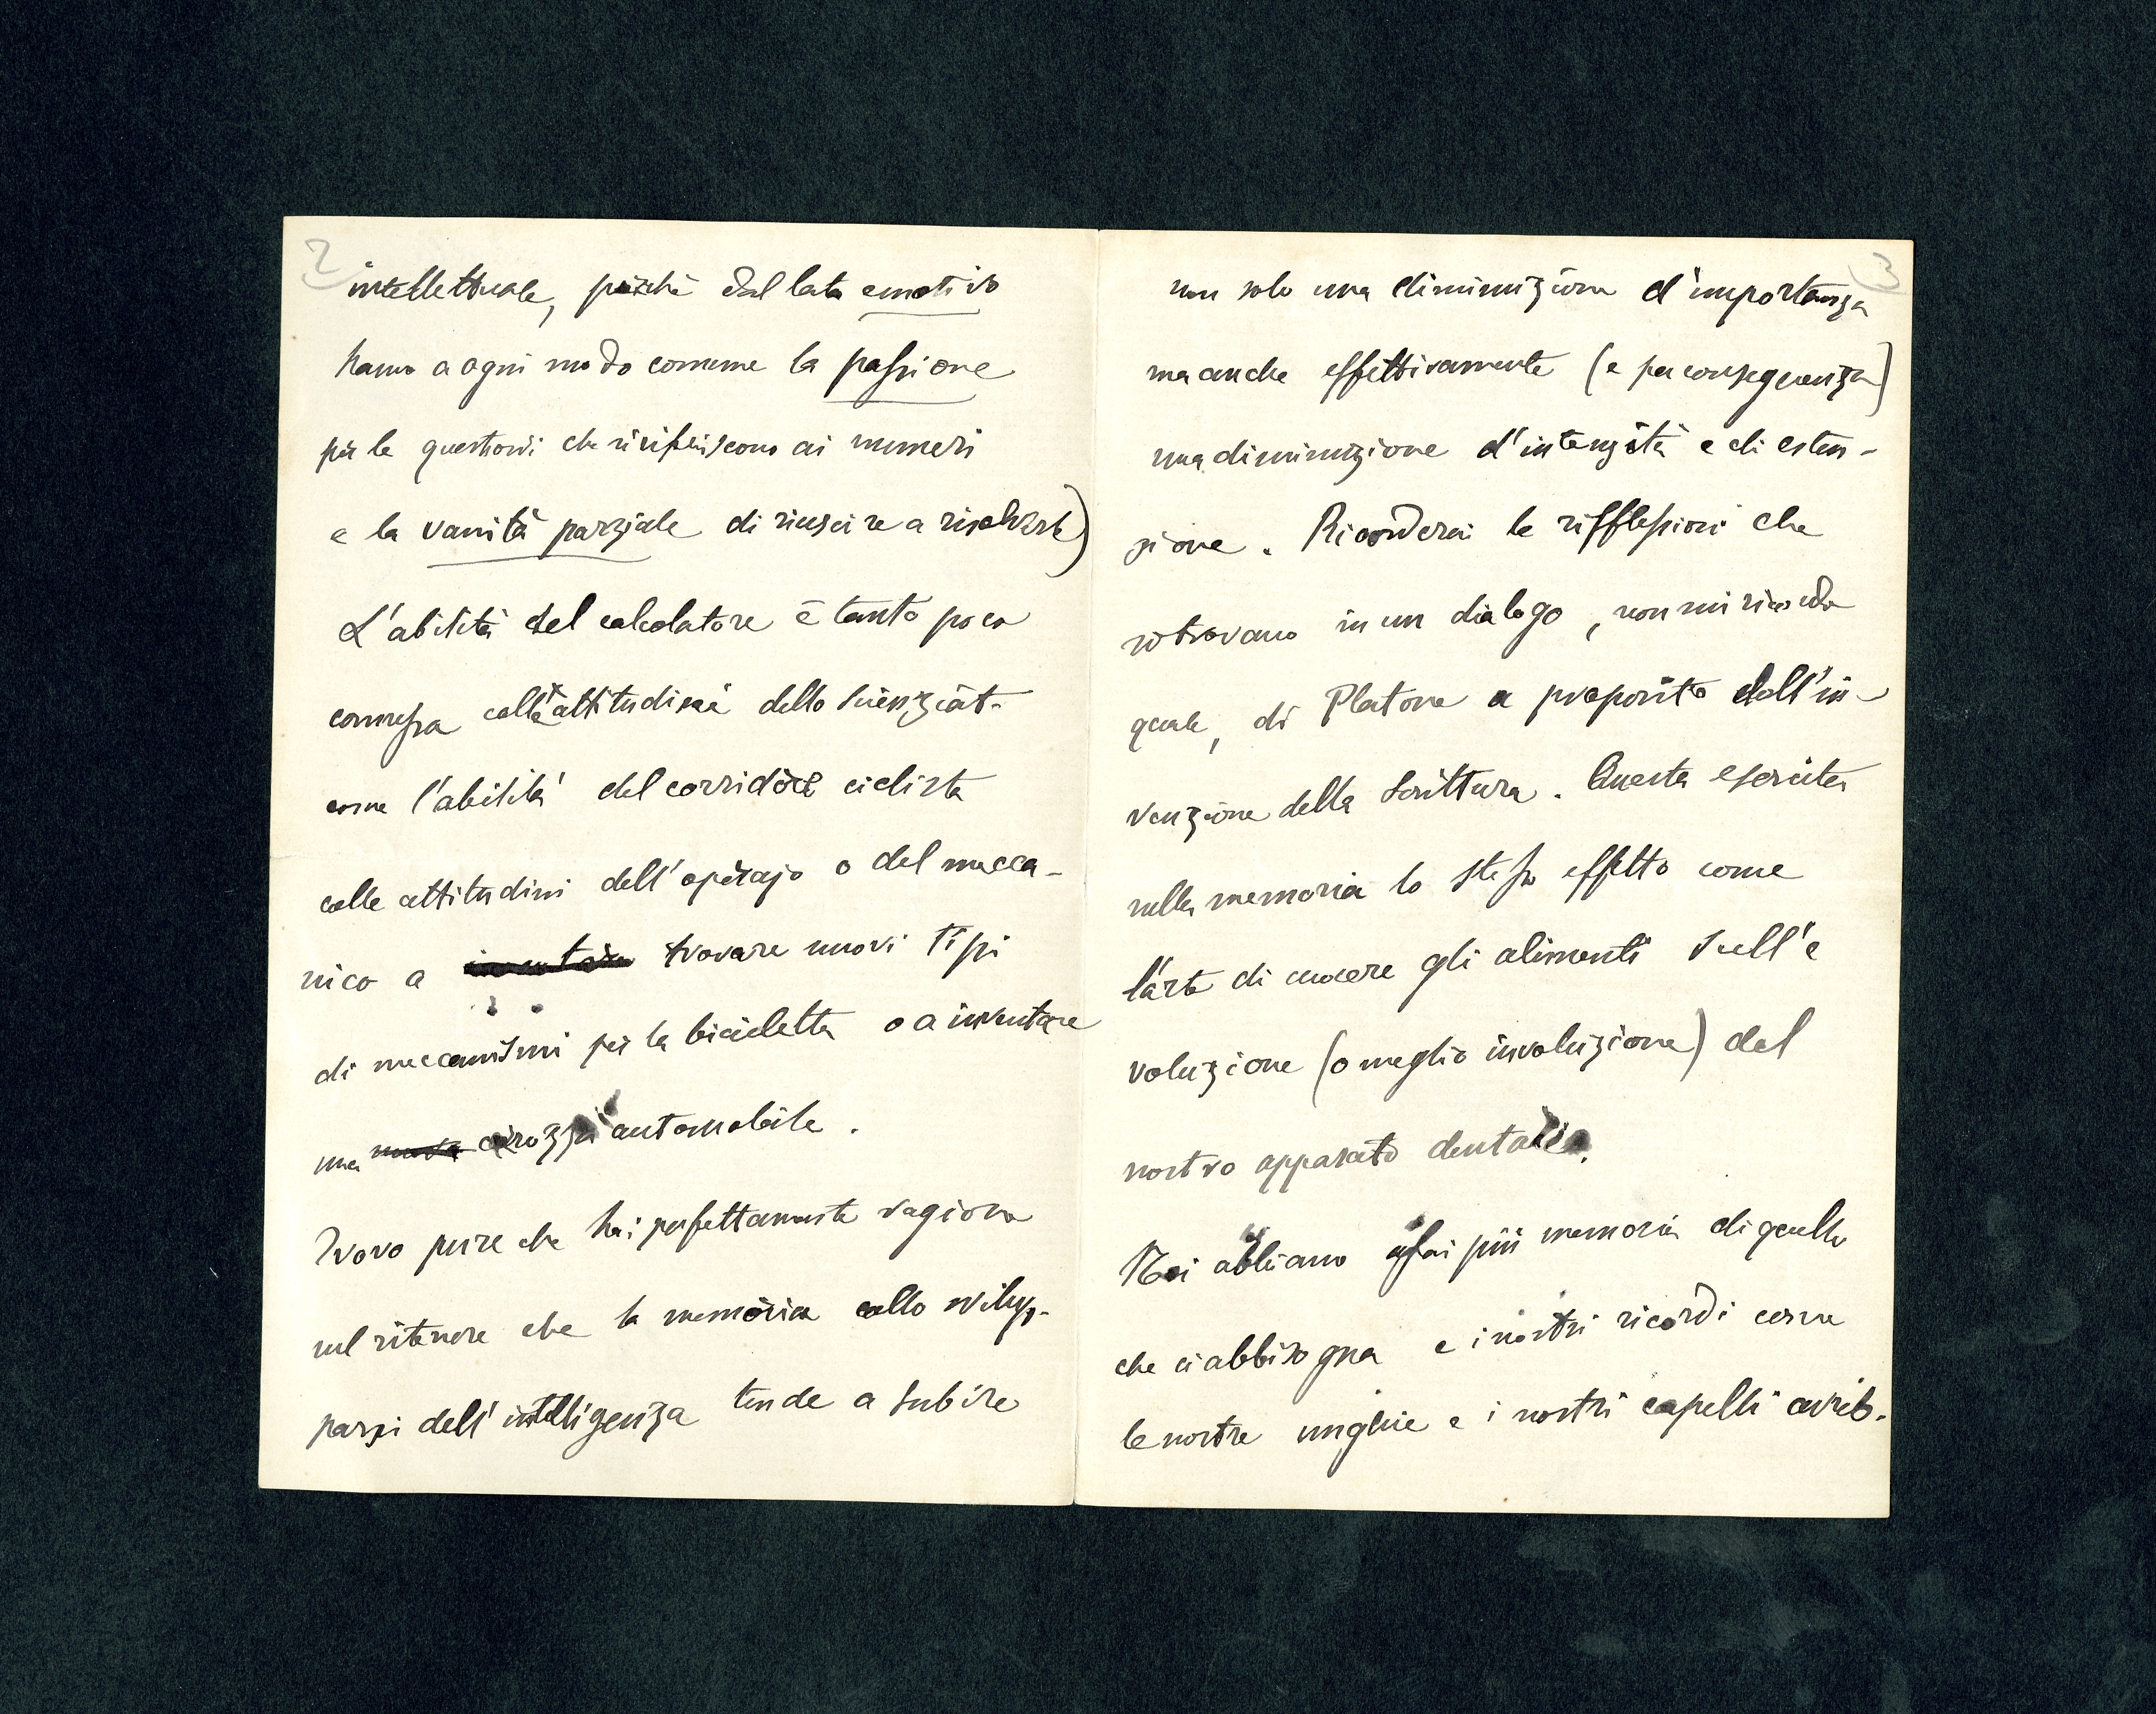 2
intellettuale, poichè dal lato emotivo
hanno a ogni modo comune la passione
per le questioni che si riferiscono ai numeri
e la vanità parziale di riuscire a risolverle)
L'abilità del calcolatore è tanto poco
connessa colle attitudini dello scienziat-
come l'abilità del corridore ciclista
colle attitudini dell'operajo o del mecca-
nico a inventare trovare nuovi tipi
di meccanismi per la bicicletta o a inventare
una nuova carozza automobile.
Trovo pure che hai perfettamente ragione
nel ritenere che la memoria collo svilup-
parsi dell'intelligenza tende a subire
3
non solo una diminuzione d'importanza
ma anche effettivamente (e per conseguenza)
una diminuzione d'intensità e di esten-
zione. Ricorderai le rifflessioni che
si trovano in un dialogo, non mi ricordo
quale, di Platone a proposito dell'in-
venzione della scrittura. Questa esercita
sulla memoria lo stesso effetto come
l'arte di cuocere gli alimenti sull'e
voluzione (o meglio involuzione) del
nostro apparato dentario.
Noi abbiamo assai più memoria di quella
che ci abbisogna e i nostri ricordi come
le nostre unghie e i nostri capelli avreb-